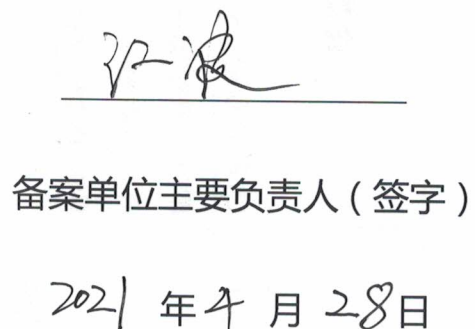 江波
备案单位主要负责人（签字）
2021 年 4 月 28 日